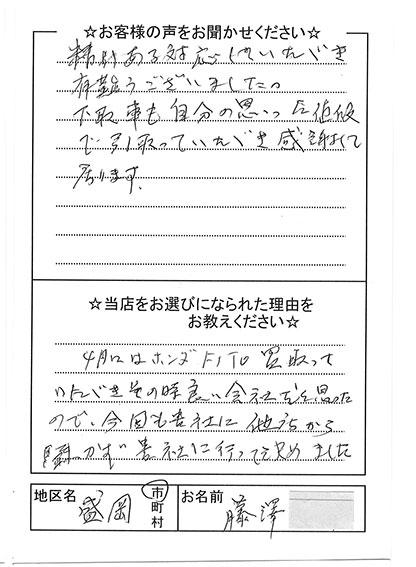 ☆お客様の声をお聞かせください☆
精針ある対応していただき
有難うございました。
下取車も自分の思った価格
で引取っていただき感謝して
居ります。
☆当店をお選びになられた理由を
お教えください☆
4月にはホンダFITを買取って
いただきその時良い会社だと思った
ので、今回も貴社に他社から
かず貴社に行って決めました
地区名
盛岡
市
町
村
お名前
藤澤